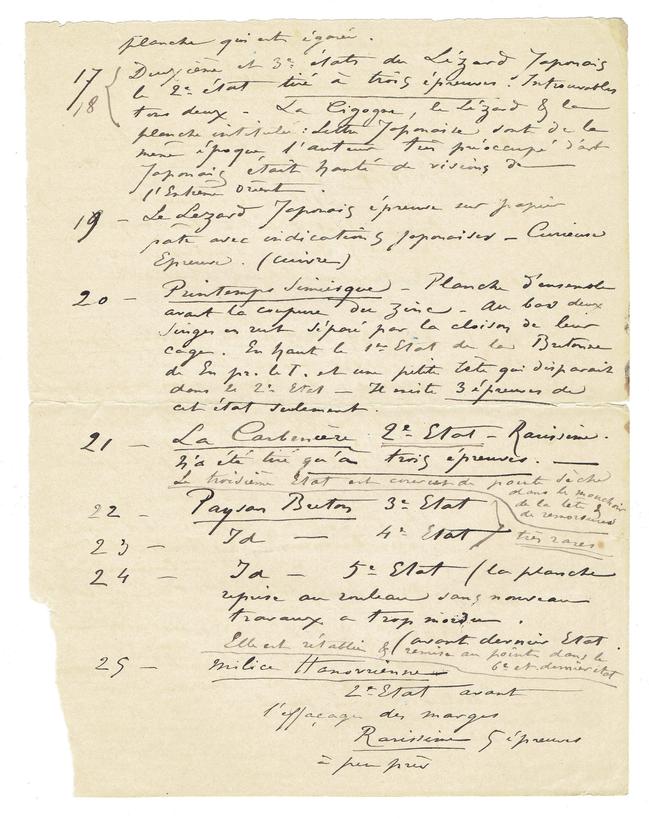 planche qui est égarée.
17 Deuxième et 3e états du Lézard Japonais
18 le 2e état tiré à trois épreuves. Introuvables
tous deux - La Cigogne, le Lézard & la
planche intitulée : Lettre Japonaise sont de la
même époque l'auteur très préoccupé d'art
Japonais était hanté de visions de
l'Extrême Orient.
19 - Le Lezard Japonais épreuve sur papier
avec indications Japonaises - Curieuse
Epreuve. (cuivre)
20 - Printemps Simiesque - Planche d'ensemble
avant la coupure du zinc - Au bas deux
singes en rut séparé par la cloison de leur
cage. En haut le 1er Etat de la Bretonne
de En pr. le T. et une petite tête qui disparait
dans le 2e Etat - Il existe 3 épreuves de
cet état seulement.
21 - La 2e Etat - Rarissime.
N'a été tiré qu'à trois épreuves. -
Le troisième Etat est couvert de pointe sèche
dans le mouchoir
de la tête &
de remorsures
22 - Paysan Breton 3e Etat
très rares
23 - Id - 4e Etat
24 - Id - 5e Etat (la planche
reprise au rouleau sans nouveau
travaux a trop mordu.
(avant dernier Etat.
Elle est rétablie & remise au point dans le
6e et dernier état
25 - Milice Hanovrienne
2e Etat avant
l'effaçage des marges
Rarissime 5 épreuves
à peu près